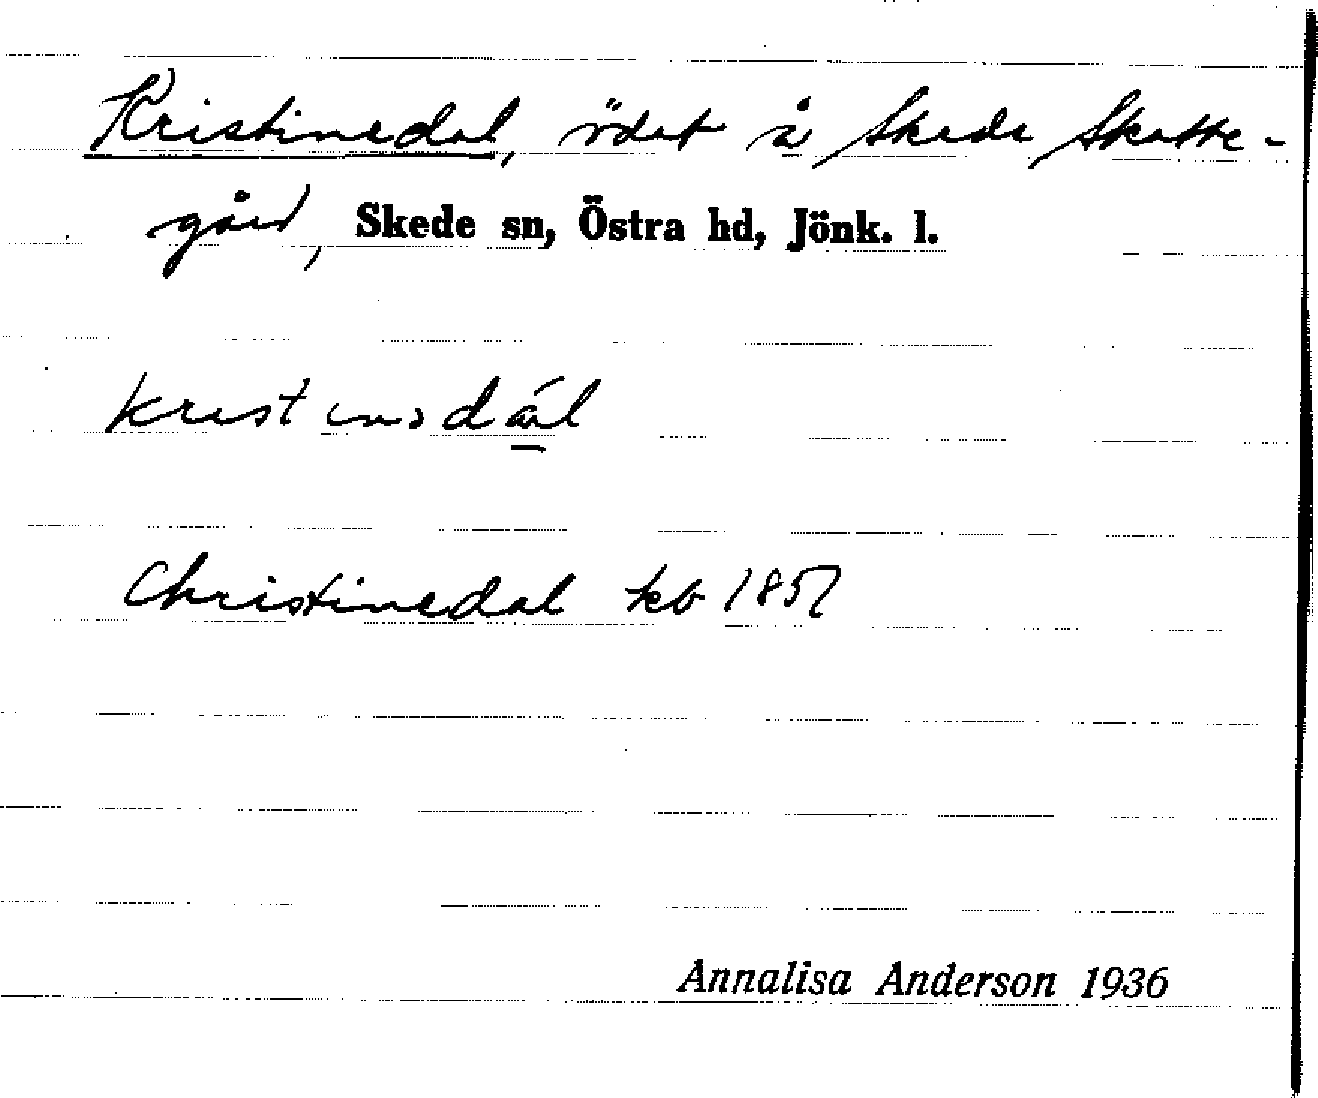 Kristinedal, ödet å Skede Skatte-
gård, Skede sn, Östra hd, Jönk. l.
Christinedal kb 1857
Annalisa Anderson 1936